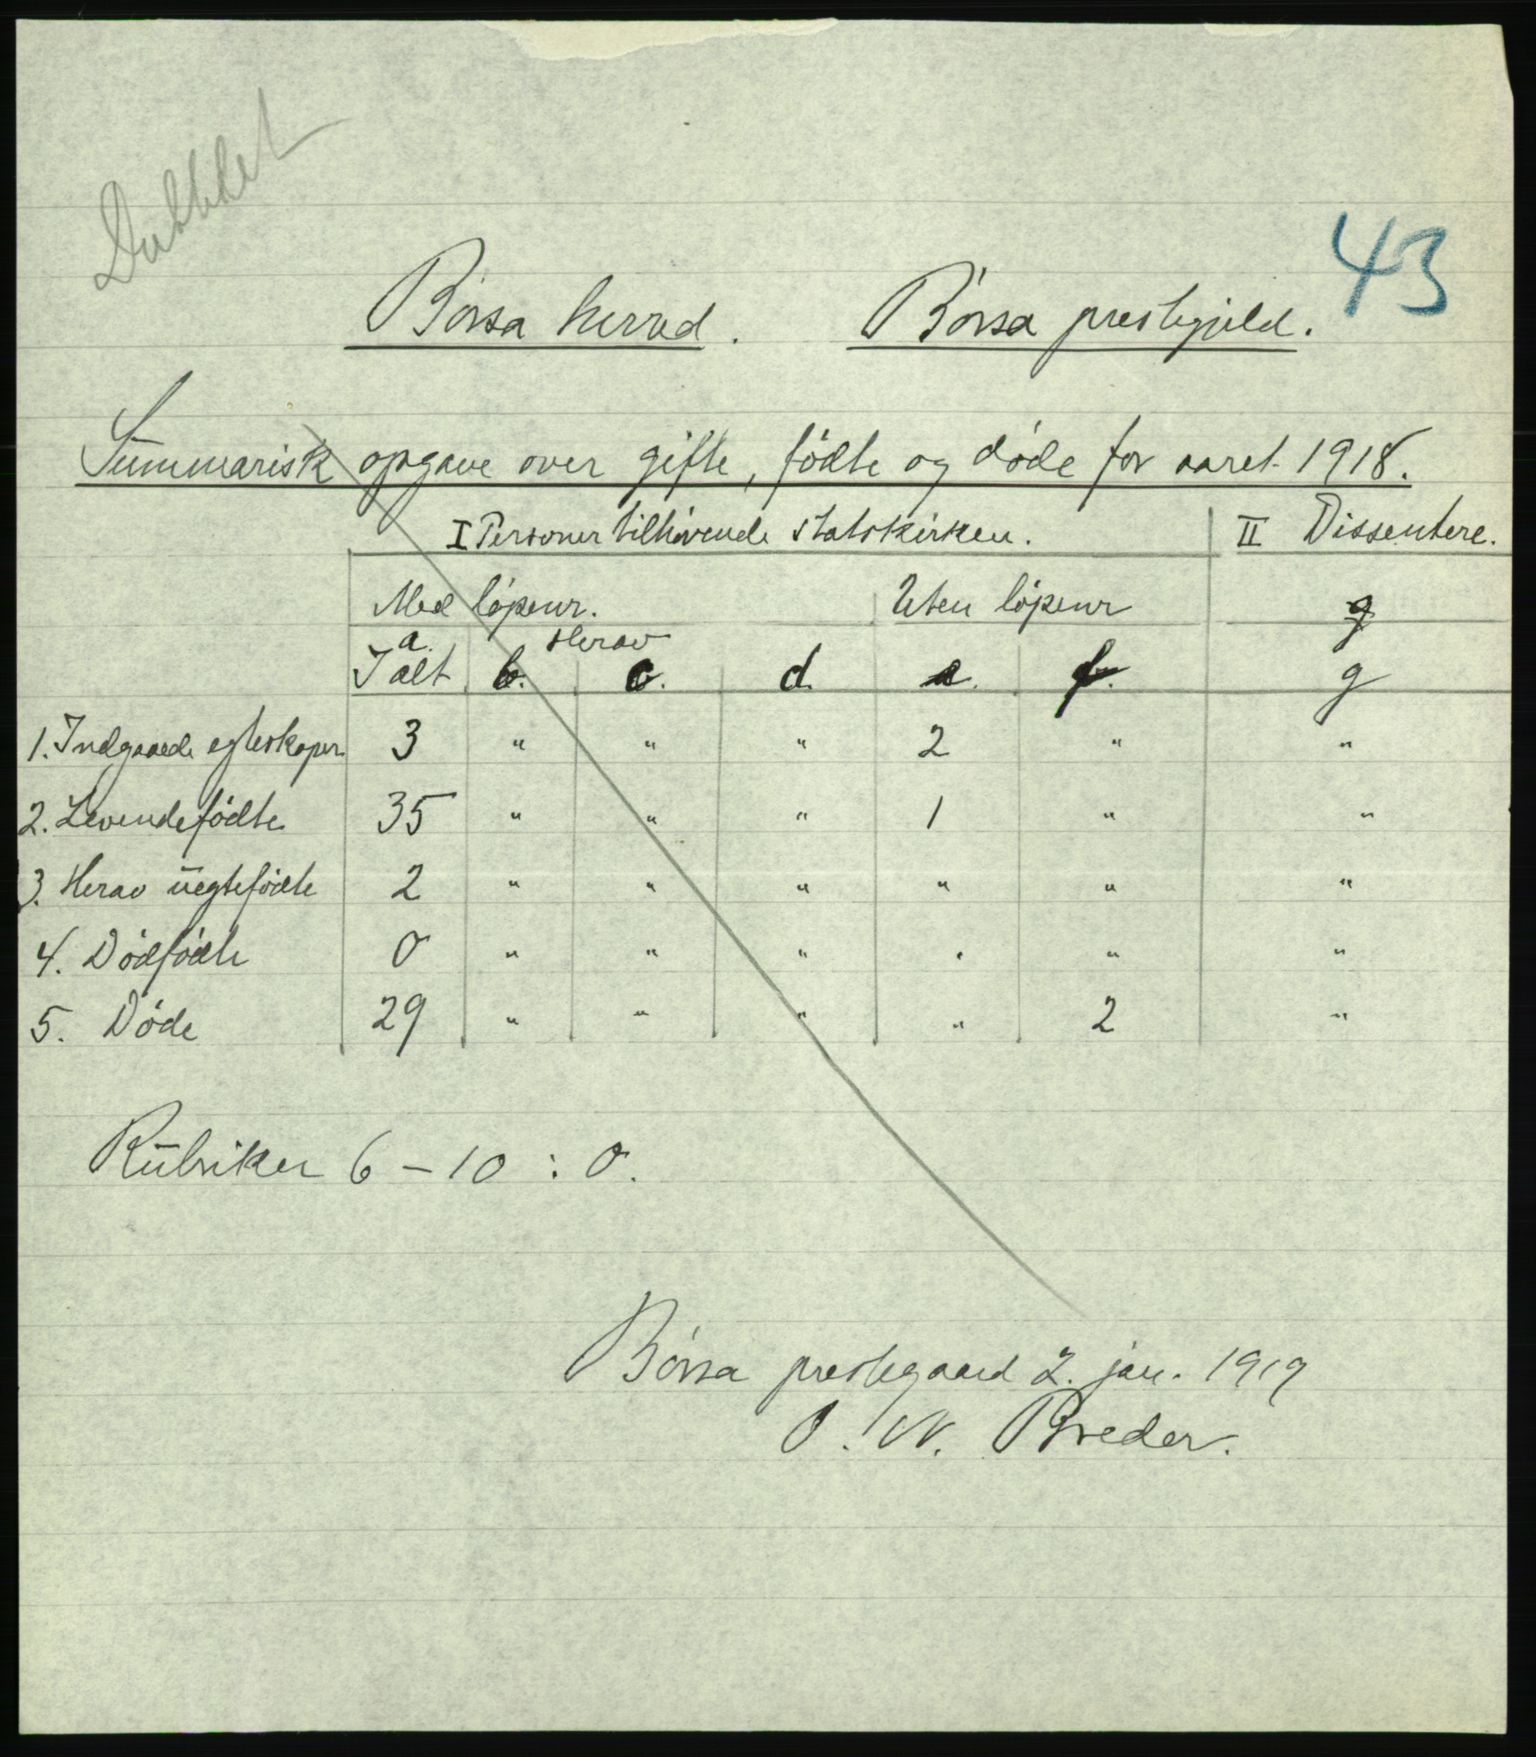 Dubblet
43
Børsa herred. Børsa prestegjeld.
Summarisk opgave over gifte, fødte og døde for aaret 1918.
I Personer tilhørende statskirken. II Dissentere.
Med løpenr. Uten løpenr g
a. Herav
I alt b. c. d. e. f. g
1. Indgaaede egteskaper 3 " " " 2 " "
2. Levendefødte 35 " " " 1 " "
3. Herav uegtefødte 2 " " " " " "
4. Dødfødte 0 " " " " " "
5. Døde 29 " " " " 2 "
Rubriker 6 – 10 : 0.
Børsa prestegaard 2. jan. 1919
O. W. Breder.